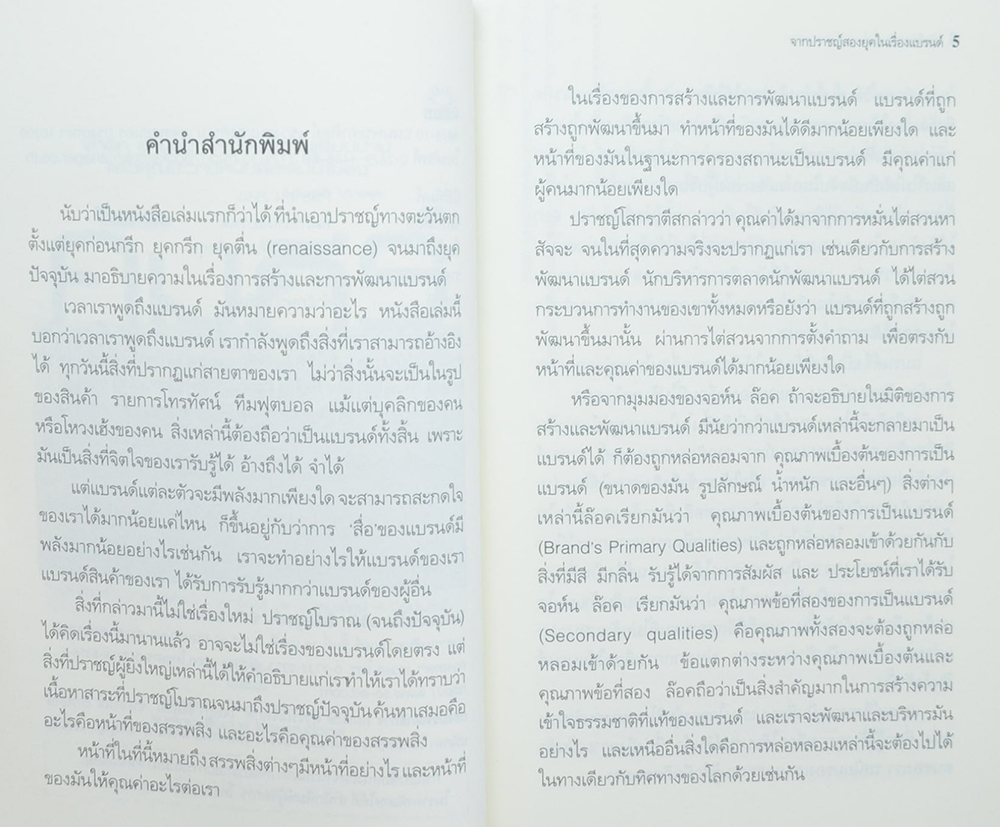 คำนำสำนักพิมพ์
นับว่าเป็นหนังสือเล่มแรกก็ว่าได้ ที่นำเอาปราชญ์ทางตะวันตก
ตั้งแต่ยุคก่อนกรีก ยุคกรีก ยุคตื่น (renaissance) จนมาถึงยุค
ปัจจุบัน มาอธิบายความในเรื่องการสร้างและการพัฒนาแบรนด์
เวลาเราพูดถึงแบรนด์ มันหมายความว่าอะไร หนังสือเล่มนี้
บอกว่าเวลาเราพูดถึงแบรนด์ เรากำลังพูดถึงสิ่งที่เราสามารถอ้างอิง
ได้ ทุกวันนี้สิ่งที่ปรากฏแก่สายตาของเรา ไม่ว่าสิ่งนั้นจะเป็นในรูป
ของสินค้า รายการโทรทัศน์ ทีมฟุตบอล แม้แต่บุคลิกของคน
หรือโหวงเฮ้งของคน สิ่งเหล่านี้ต้องถือว่าเป็นแบรนด์ทั้งสิ้น เพราะ
มันเป็นสิ่งที่จิตใจของเรารับรู้ได้ อ้างถึงได้ จำได้
แต่แบรนด์แต่ละตัวจะมีพลังมากเพียงใด จะสามารถสะกดใจ
ของเราได้มากน้อยแค่ไหน ก็ขึ้นอยู่กับว่าการ 'สื่อ'ของแบรนด์มี
พลังมากน้อยอย่างไรเช่นกัน เราจะทำอย่างไรให้แบรนด์ของเรา
แบรนด์สินค้าของเรา ได้รับการรับรู้มากกว่าแบรนด์ของผู้อื่น
สิ่งที่กล่าวมานี้ไม่ใช่เรื่องใหม่ ปราชญ์โบราณ (จนถึงปัจจุบัน)
ได้คิดเรื่องนี้มานานแล้ว อาจจะไม่ใช่เรื่องของแบรนด์โดยตรง แต่
สิ่งที่ปราชญ์ผู้ยิ่งใหญ่เหล่านี้ได้ให้คำอธิบายแก่เราทำให้เราได้ทราบว่า
เนื้อหาสาระที่ปราชญ์โบราณจนมาถึงปราชญ์ปัจจุบันค้นหาเสมอคือ
อะไรคือหน้าที่ของสรรพสิ่ง และอะไรคือคุณค่าของสรรพสิ่ง
หน้าที่ในที่นี้หมายถึง สรรพสิ่งต่างๆมีหน้าที่อย่างไร และหน้าที่
ของมันให้คุณค่าอะไรต่อเรา
จากปราชญ์สองยุคในเรื่องแบรนด์ 5
ในเรื่องของการสร้างและการพัฒนาแบรนด์ แบรนด์ที่ถูก
สร้างถูกพัฒนาขึ้นมา ทำหน้าที่ของมันได้ดีมากน้อยเพียงใด และ
หน้าที่ของมันในฐานะการครองสถานะเป็นแบรนด์ มีคุณค่าแก่
ผู้คนมากน้อยเพียงใด
ปราชญ์โสกราตีสกล่าวว่า คุณค่าได้มาจากการหมั่นไต่สวนหา
สัจจะ จนในที่สุดความจริงจะปรากฏแก่เรา เช่นเดียวกับการสร้าง
พัฒนาแบรนด์ นักบริหารการตลาดนักพัฒนาแบรนด์ ได้ไต่สวน
กระบวนการทำงานของเขาทั้งหมดหรือยังว่า แบรนด์ที่ถูกสร้างถูก
พัฒนาขึ้นมานั้น ผ่านการไต่สวนจากการตั้งคำถาม เพื่อตรงกับ
หน้าที่และคุณค่าของแบรนด์ได้มากน้อยเพียงใด
หรือจากมุมมองของจอห์น ล๊อค ถ้าจะอธิบายในมิติของการ
สร้างและพัฒนาแบรนด์ มีนัยว่ากว่าแบรนด์เหล่านี้จะกลายมาเป็น
แบรนด์ได้ ก็ต้องถูกหล่อหลอมจาก คุณภาพเบื้องต้นของการเป็น
แบรนด์ (ขนาดของมัน รูปลักษณ์ น้ำหนัก และอื่นๆ) สิ่งต่างๆ
เหล่านี้ล๊อคเรียกมันว่า คุณภาพเบื้องต้นของการเป็นแบรนด์
(Brand's Primary Qualities) และถูกหล่อหลอมเข้าด้วยกันกับ
สิ่งที่มีสี มีกลิ่น รับรู้ได้จากการสัมผัส และ ประโยชน์ที่เราได้รับ
จอห์น ล๊อค เรียกมันว่า คุณภาพข้อที่สองของการเป็นแบรนด์
(Secondary qualities) คือคุณภาพทั้งสองจะต้องถูกหล่อ
หลอมเข้าด้วยกัน ข้อแตกต่างระหว่างคุณภาพเบื้องต้นและ
คุณภาพข้อที่สอง ล๊อคถือว่าเป็นสิ่งสำคัญมากในการสร้างความ
เข้าใจธรรมชาติที่แท้ของแบรนด์ และเราจะพัฒนาและบริหารมัน
อย่างไร และเหนืออื่นสิ่งใดคือการหล่อหลอมเหล่านี้จะต้องไปได้
ในทางเดียวกับทิศทางของโลกด้วยเช่นกัน